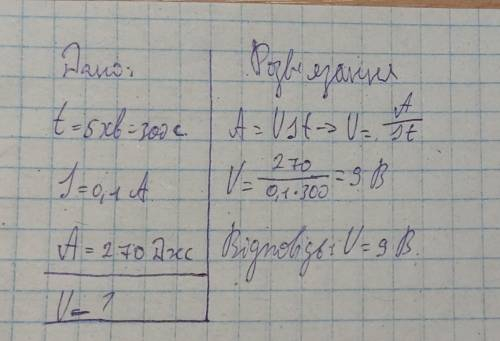 Дано:
t = 5хв = 300с.
I = 0,1 А
A = 270 Дж
U = ?
Розв'язання
A = UIt → U = A/It
U = 270/0,1·300 = 9 В
Відповідь: U = 9 В.